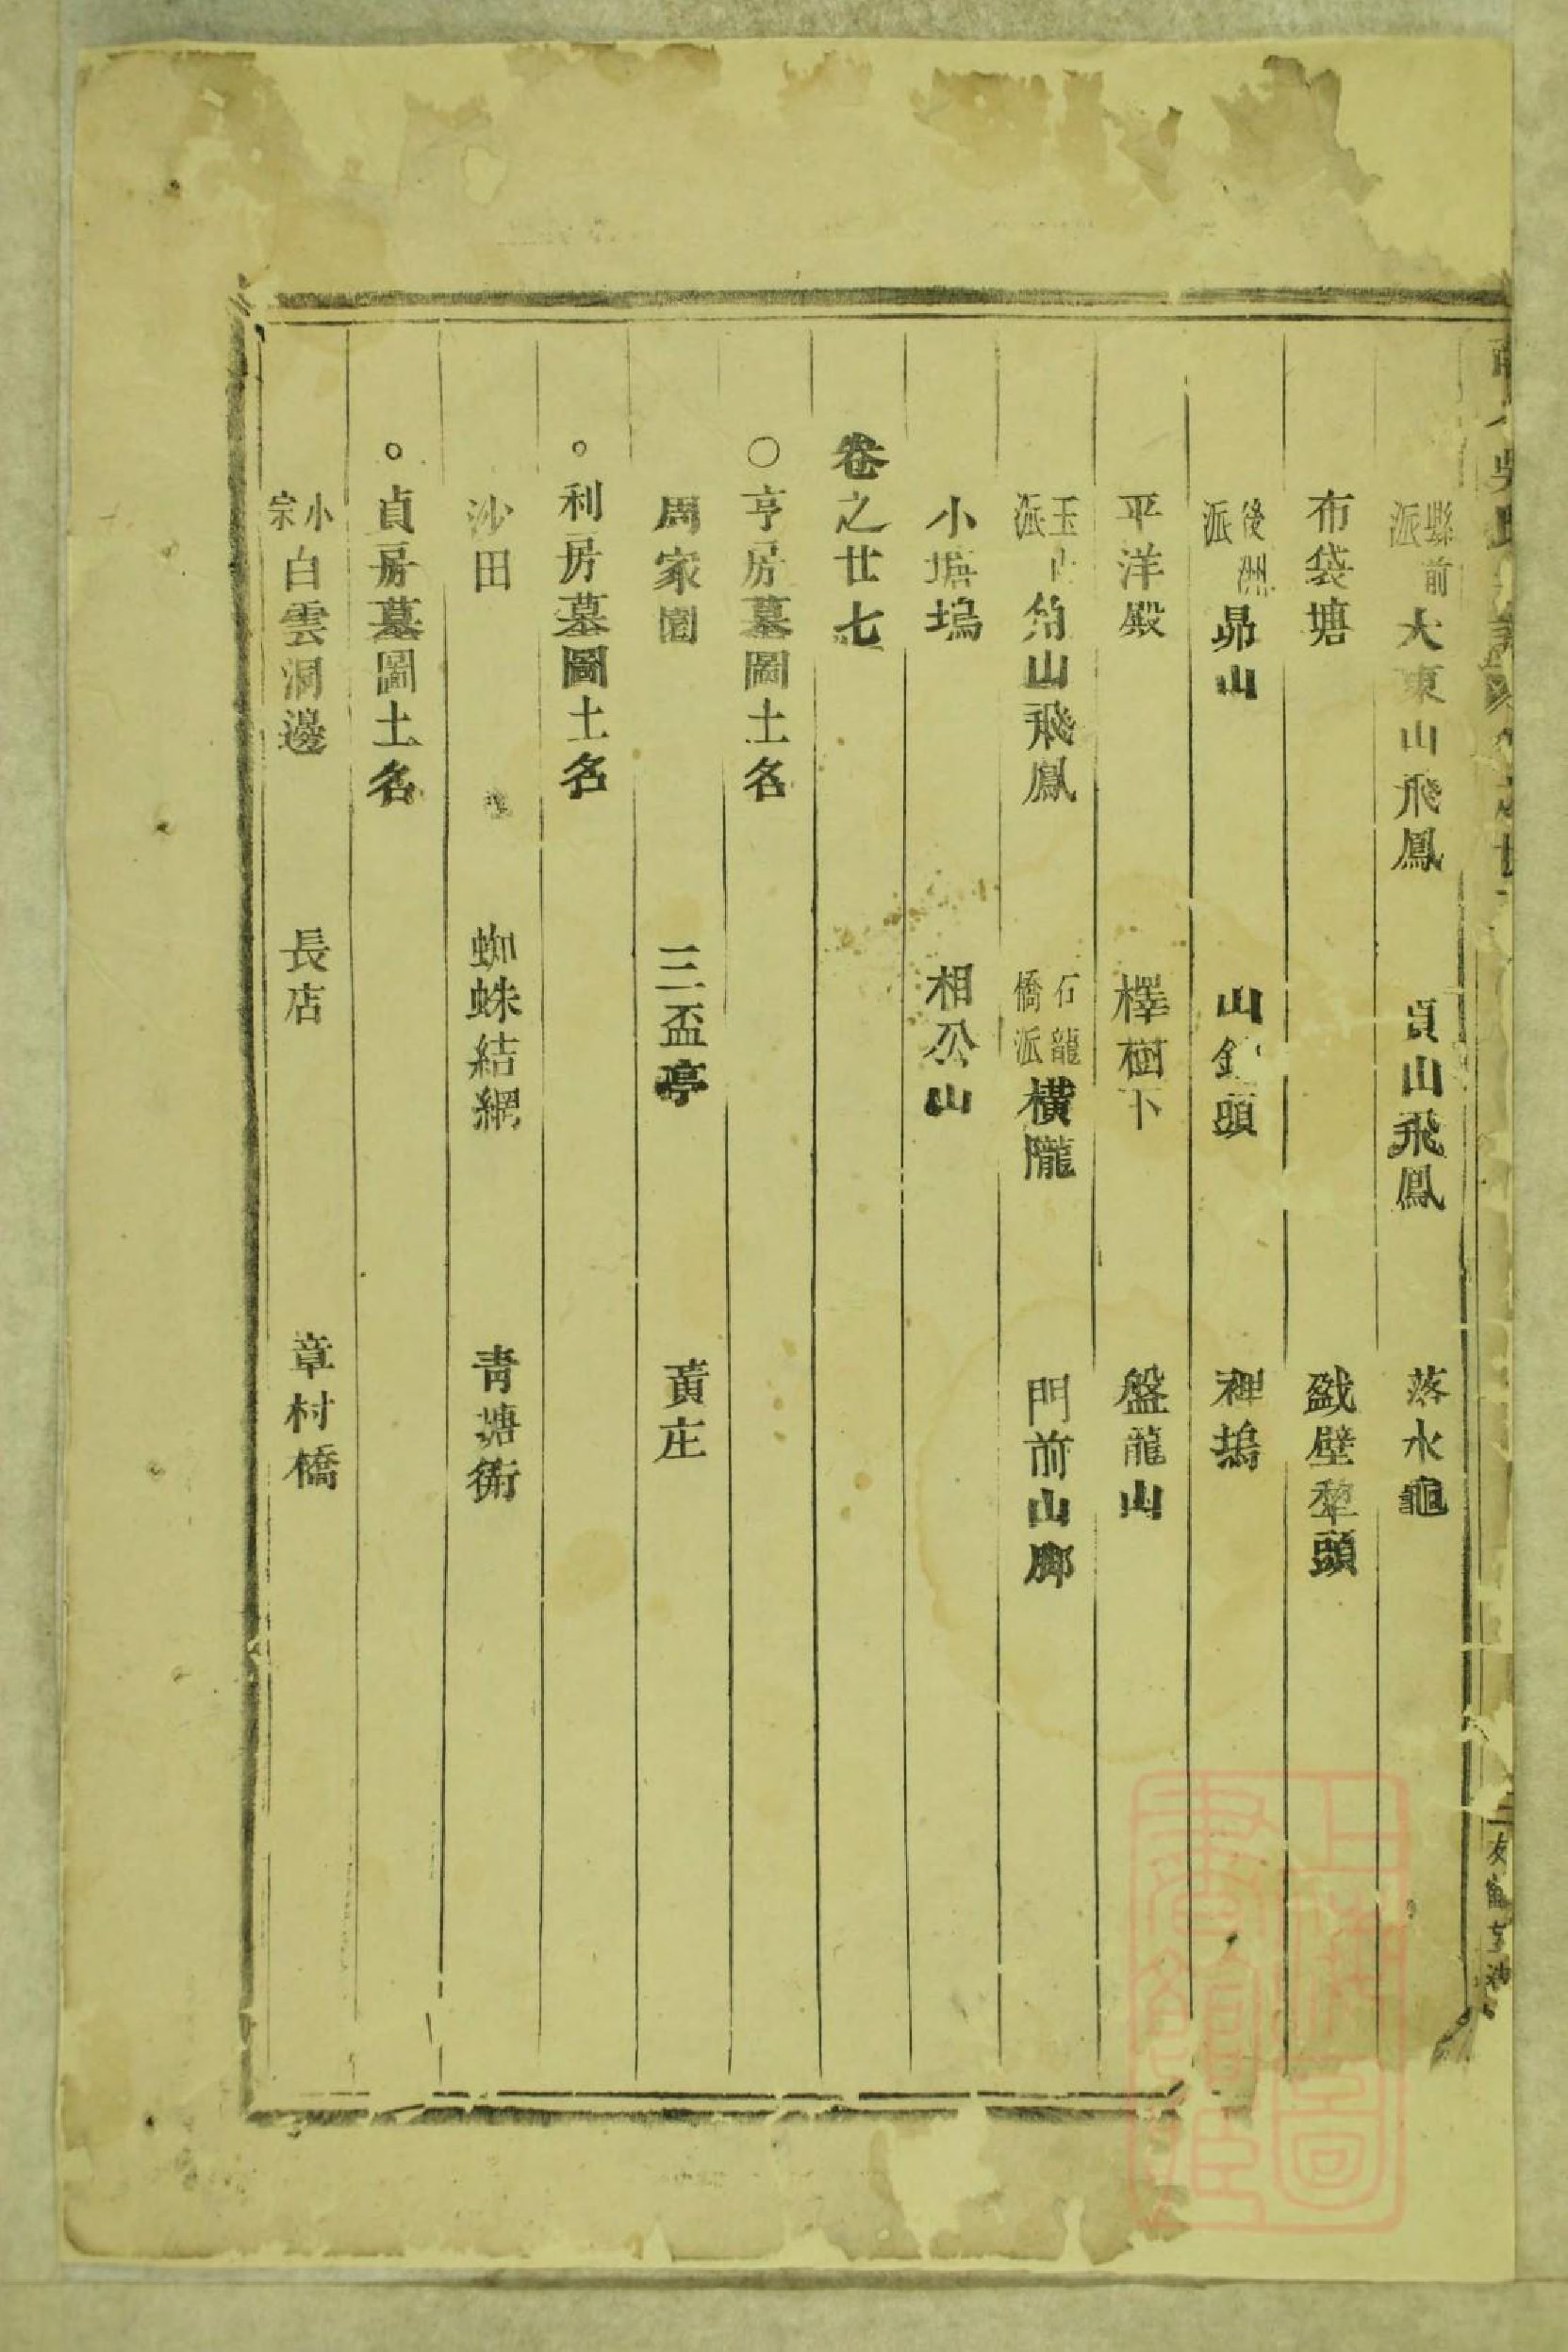 縣前派 大東山飛鳳 山飛鳳 落水龜
布袋塘 壁犂頭
後洲派 昴山 山頭 裡塢
平洋殿 檡樹下 盤龍山
玉山派 角山飛鳳 石龍橋派 橫隴 門前山脚
小塘塢 相公山
卷之廿七
○亨房墓圖土名
周家園 三盃亭 黃庄
○利房墓圖土名
沙田 蜘蛛結網 青塘衕
○貞房墓圖土名
小宗 白雲洞邊 長店 章村橋
上海圖書館藏